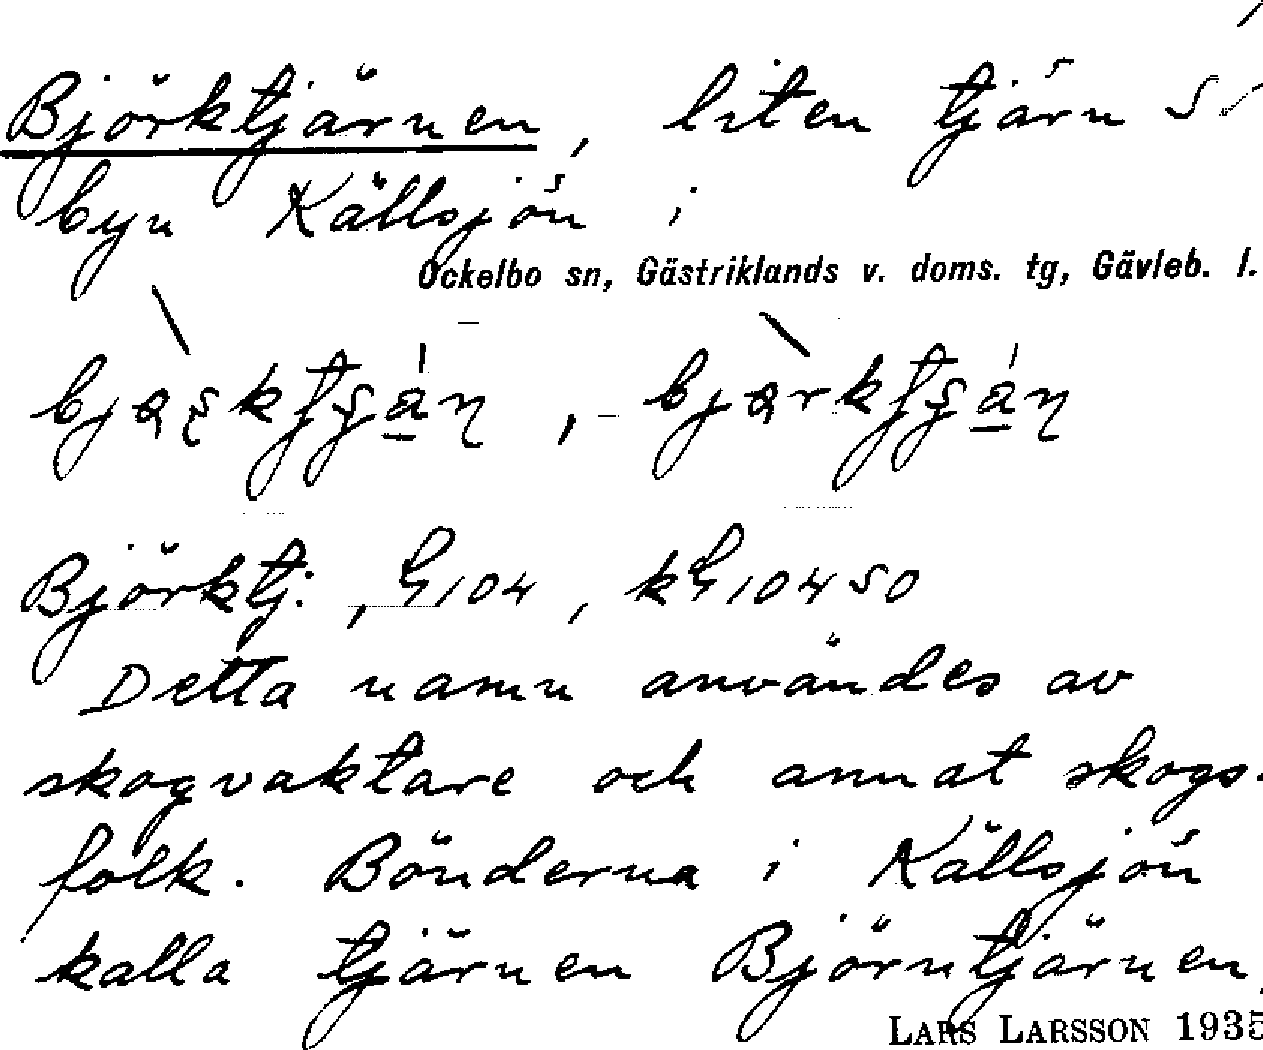 Björktjärnen, liten tjärn S
byn Källsjön i
Ockelbo sn, Gästriklands v. doms. tg, Gävleb. l.
Björktj:, G104, kG10450
Detta namn användes av
skogvaktare och annat skogs-
folk. Bönderna i Källsjön
kalla tjärnen Björntjärnen.
LARS LARSSON 1935